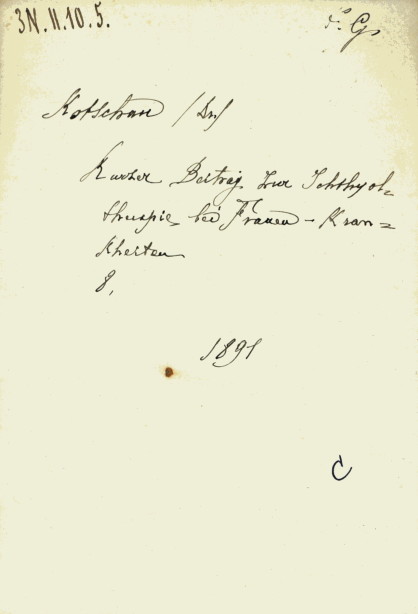 3N.II.10.5.
Kotschau (Dr)
Kurzer Beitrag zur Ichthyol=
therapie bei Frauen-Kran=
kheiten
8.
1891
C